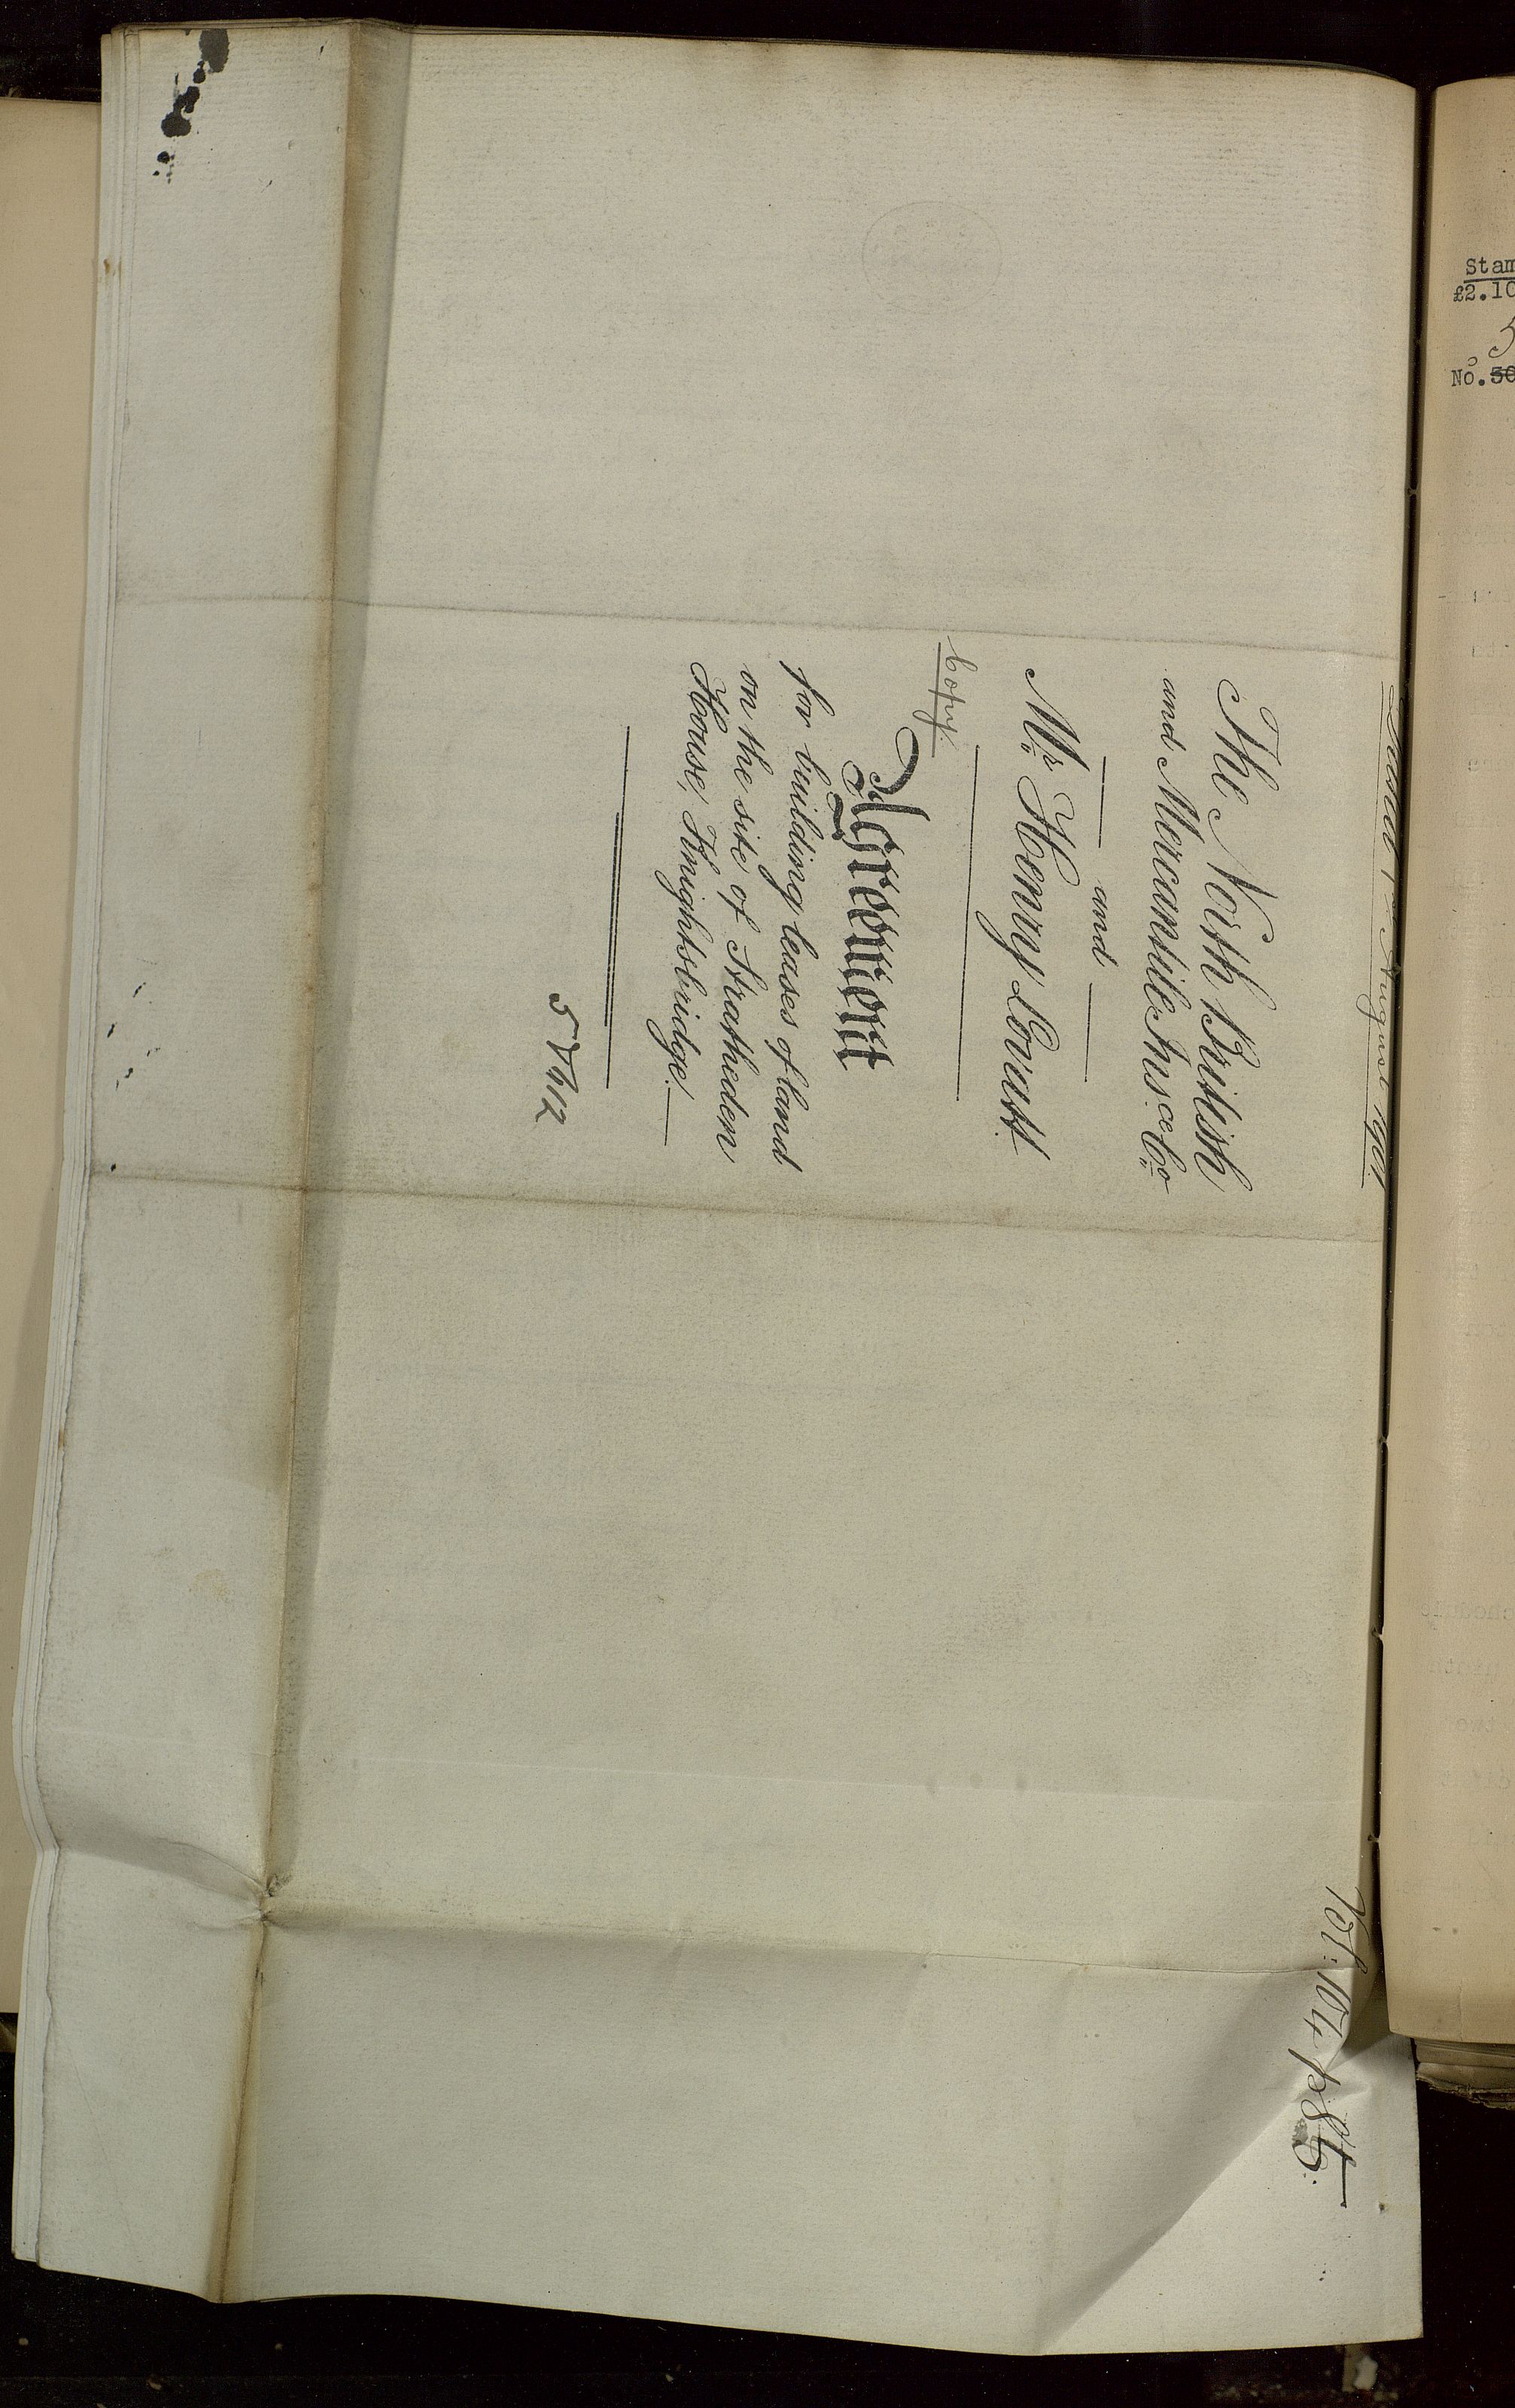 Dated 1st August 1901
The North British
and Mercantile Insce Co
and
Mr Henry Lovatt
Copy.
Agreement
for building leases of land
on the site of Stratheden
House, Knightsbridge.
Vol: 104
Stam
£2.10
5
No. 50